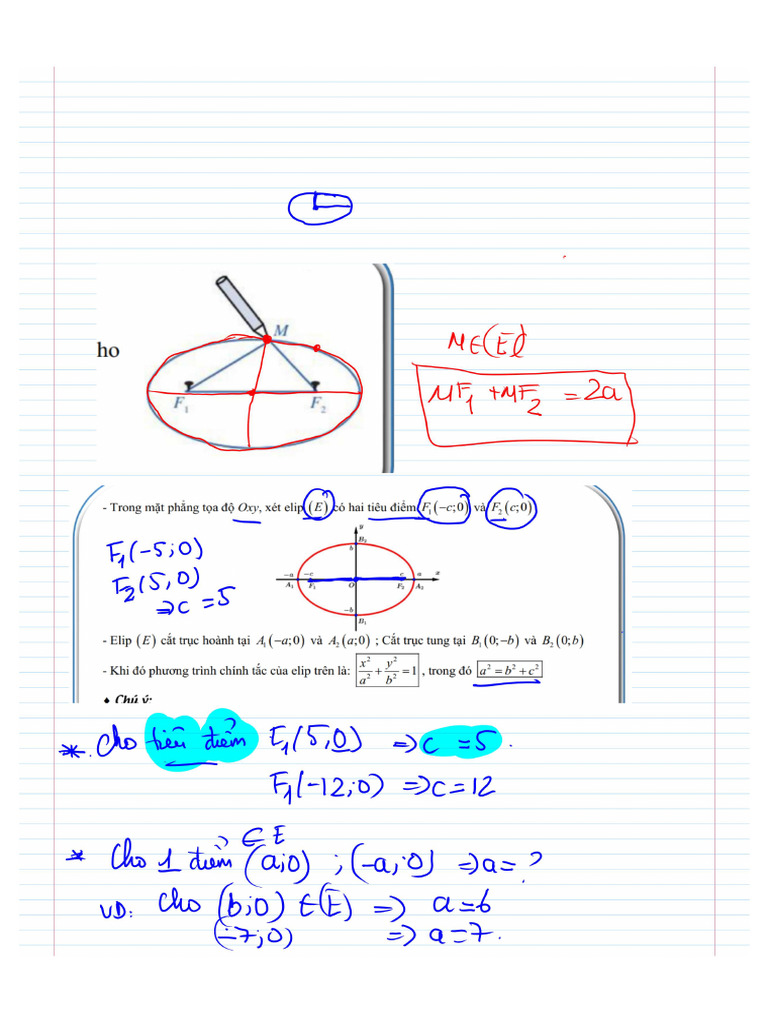 M
ho
F₁ F₂
M ∈ (E)
MF₁ + MF₂ = 2a
- Trong mặt phẳng tọa độ Oxy, xét elip (E) có hai tiêu điểm F₁(−c;0) và F₂(c;0)
F₁(-5;0)
F₂(5,0)
⇒ c = 5
y
B₂
b
−a −c c a x
A₁ F₁ O F₂ A₂
−b
B₁
- Elip (E) cắt trục hoành tại A₁(−a;0) và A₂(a;0) ; Cắt trục tung tại B₁(0;−b) và B₂(0;b)
- Khi đó phương trình chính tắc của elip trên là: x²/a² + y²/b² = 1 , trong đó a² = b² + c²
♦ Chú ý:
*. Cho tiêu điểm F₁(5,0) ⇒ c = 5.
F₁(-12;0) ⇒ c = 12
∈ E
* Cho 1 điểm (a;0) ; (-a;0) ⇒ a = ?
VD: Cho (6;0) ∈ (E) ⇒ a = 6
(-7;0) ⇒ a = 7.